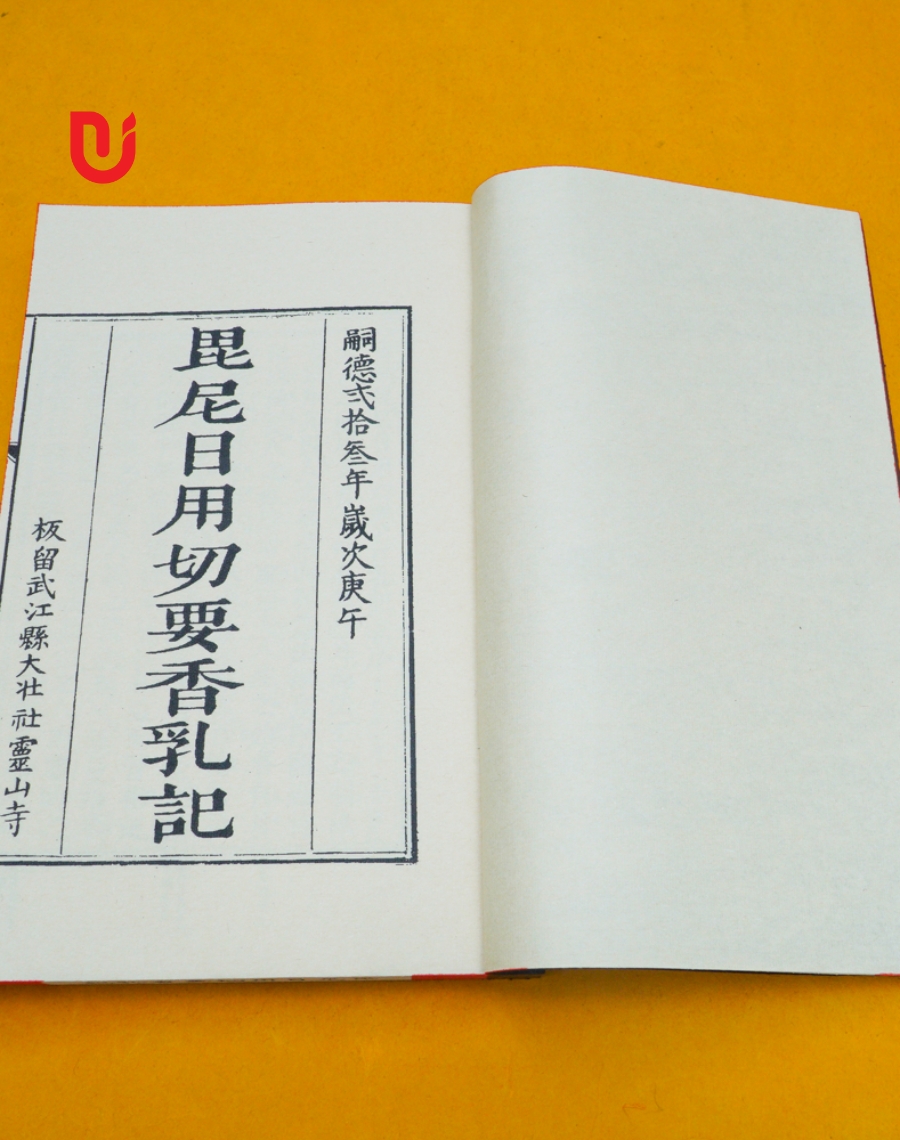 嗣德弍拾叄年歲次庚午
毘尼日用切要香乳記
板留武江縣大壮社靈山寺